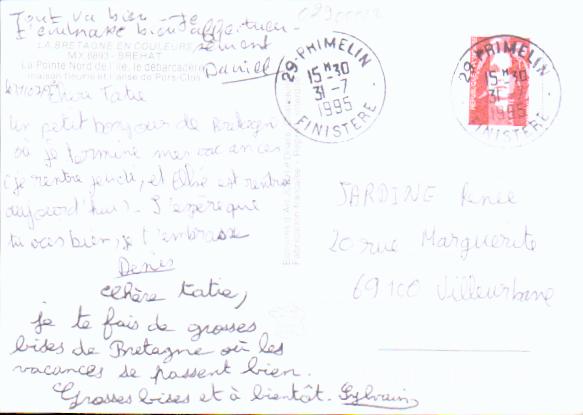 Tout va bien - Je
t'embrasse bien affectueu-
sement
Daniel
LA BRETAGNE EN COULEURS
MX 6893 - BREHAT
La Pointe Nord de l'île, le débarcadère
maison fleurie et l'anse de Pors-Clos
Chère Tatie
Un petit bonjour de Bretagne
où je termine mes vacances
(je rentre jeudi, et est rentré
aujourd'hui). J'espère que
tu vas bien, je t'embrasse
Denis
Chère tatie,
je te fais de grosses
bises de Bretagne où les
vacances se passent bien.
Grosses bises et à bientôt. Sylvain
29 - PHIMELIN
15 H 30
31 - 7
1995
FINISTERE
29 - PHIMELIN
15 H 30
31 - 7
1995
FINISTERE
JARDINE Renée
20 rue Marguerite
69100 Villeurbanne